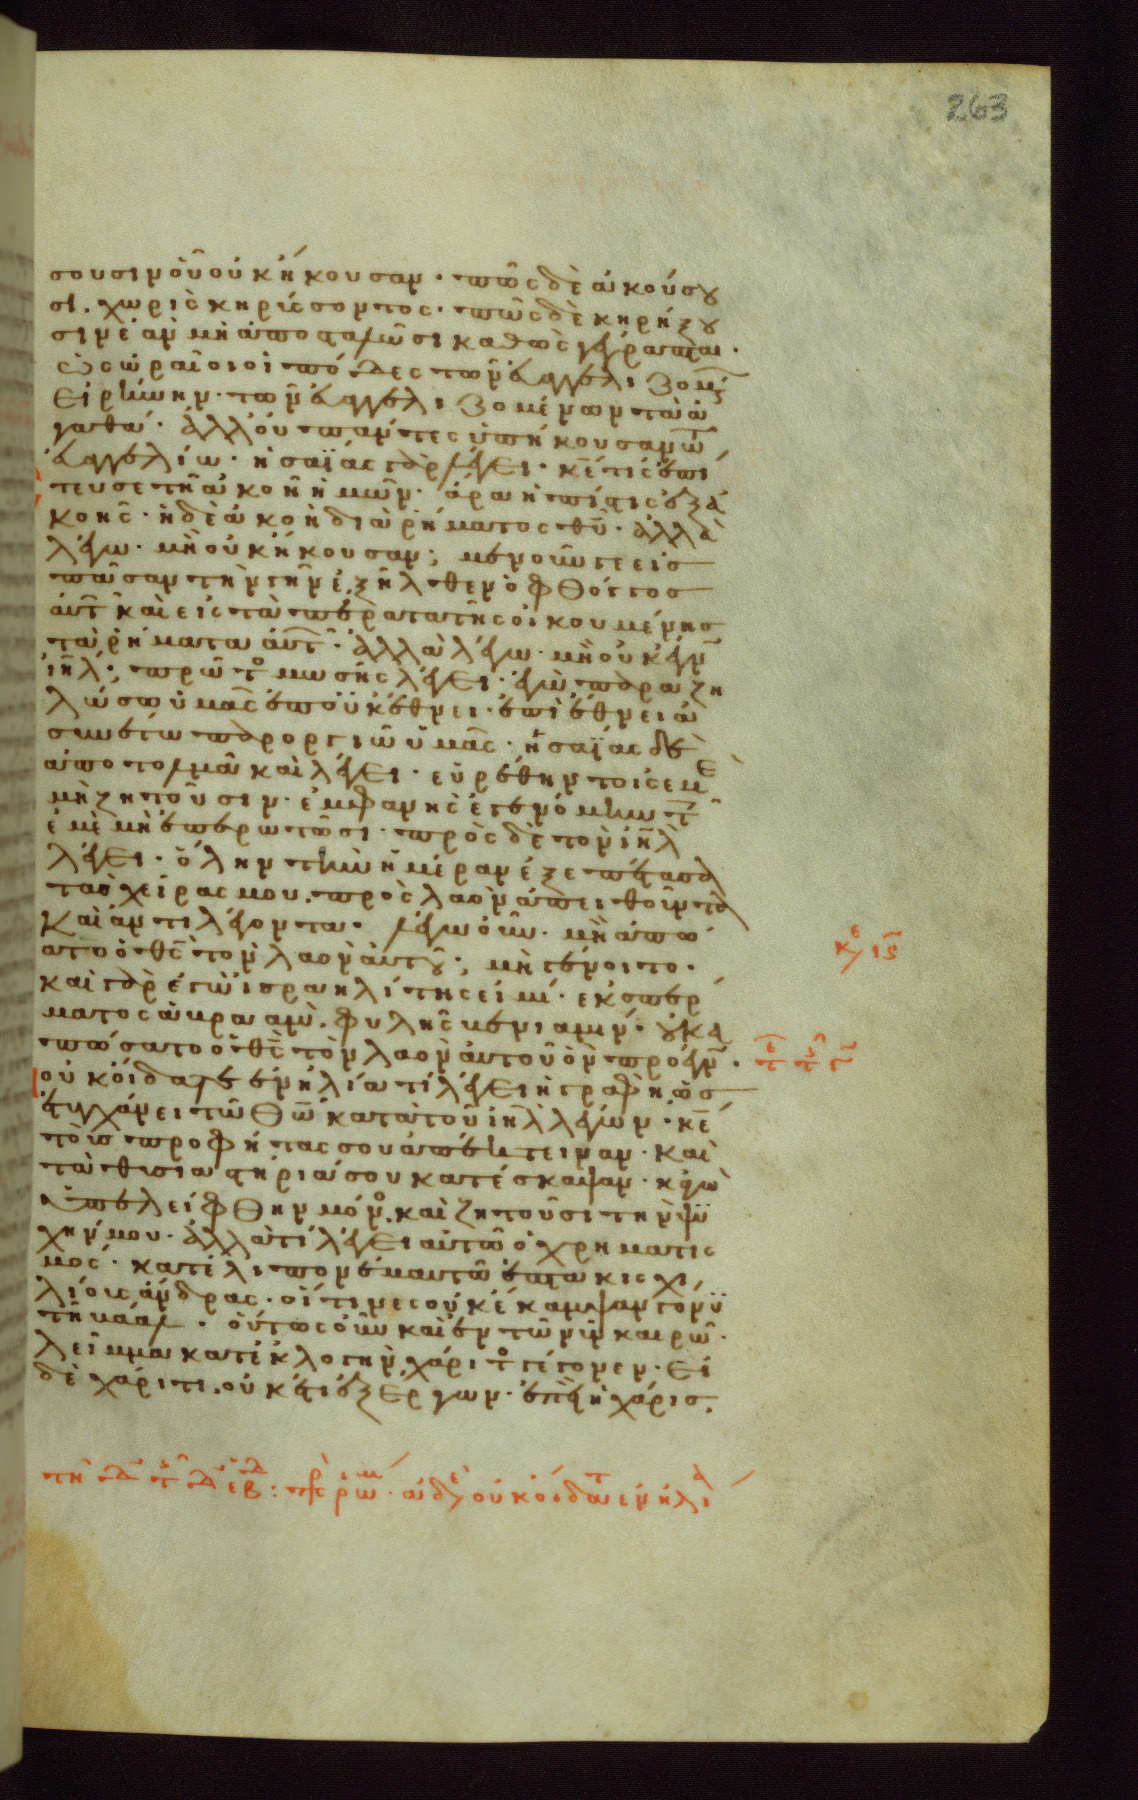 263
σουσιν οὗ οὐκ ἤκουσαν · πῶς δὲ ἀκούσου
σι · χωρὶς κηρύσσοντος · πῶς δὲ κηρήξου
σιν ἐὰν μὴ ἀποσταλῶσι καθὼς γέγραπται ·
ὡς ὡραῖοι οἱ πόδες τῶν εὐαγγελιζομέν
εἰρήνην · τῶν εὐαγγελιζομένων τὰ ἀ
γαθά · ἀλλ' οὐ πάντες ὑπήκουσαν τῶ
εὐαγγελίω · ἡσαΐας γὰρ λέγει · κε τίς ἐπί
τευσε τῆ ἀκοῆ ἡμῶν · ἄρα ἡ πίστις ἐξ ἀ
κοῆς · ἡ δὲ ἀκοὴ διὰ ῥήματος θυ · ἀλλὰ
λέγω · μὴ οὐκ ἤκουσαν ; μενοῦνγε εἰς
πᾶσαν τὴν γῆν ἐξῆλθεν ὁ φθόγγος
αὐτῶν καὶ εἰς τὰ πέρατα τῆς οἰκουμένης
τὰ ῥήματα αὐτῶν · ἀλλὰ λέγω · μὴ οὐκ ἔγν
ιηλ ; πρῶτος μωσῆς λέγει · ἐγὼ παραζη
λώσω ὑμᾶς ἐπ' οὐκ ἔθνει · ἐπὶ ἔθνει ἀ
συνέτω παροργιῶ ὑμᾶς · ἡσαΐας δὲ
ἀποτολμᾶ καὶ λέγει · εὑρέθην τοῖς ἐμὲ
μὴ ζητοῦσιν · ἐμφανὴς ἐγενόμην τοῖς
ἐμὲ μὴ ἐπερωτῶσι · πρὸς δὲ τὸν ιηλ
λέγει · ὅλην τὴν ἡμέραν ἐξεπέτασα
τὰς χεῖράς μου πρὸς λαὸν ἀπειθοῦντα
καὶ ἀντιλέγοντα · λέγω οὖν · μὴ ἀπώ
σατο ὁ θς τὸν λαὸν αὐτοῦ ; μὴ γένοιτο ·
καὶ γὰρ ἐγὼ ἰσραηλίτης εἰμί · ἐκ σπέρ
ματος ἀβρααμ · φυλῆς βενιαμιν · οὐκ ἀ
πώσατο ὁ θς τὸν λαὸν αὐτοῦ ὃν προέγν ·
οὐκ οἴδατε ἐν ἠλία τί λέγει ἡ γραφὴ ὡς
ἐντυγχάνει τῶ θω κατὰ τοῦ ιηλ λέγων · κε
τοὺς προφήτας σου ἀπέκτειναν · καὶ
τὰ θυσιαστήριά σου κατέσκαψαν · κἀγὼ
ὑπελείφθην μόνος καὶ ζητοῦσι τὴν ψυ
χήν μου · ἀλλὰ τί λέγει αὐτῶ ὁ χρηματισ
μός · κατέλιπον ἐμαυτῶ ἑπτακισχι
λίους ἄνδρας · οἵτινες οὐκ ἔκαμψαν γόνυ
τῆ βάαλ · οὕτως οὖν καὶ ἐν τῶ νῦν καιρῶ
λεῖμμα κατ' ἐκλογὴν χάριτος γέγονεν · εἰ
δὲ χάριτι · οὐκέτι ἐξ ἔργων · ἐπεὶ ἡ χάρις
κε ις
τη · πρ ρωμ · αδε ουκ οιδατ εν ηλια